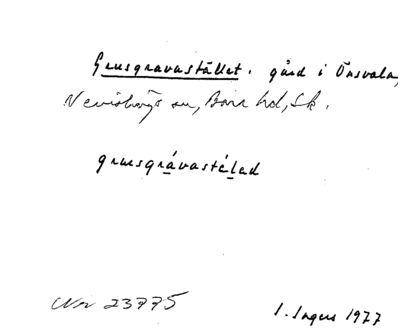 Grusgravastället. gård i Önsvala,
Nevishögs sn, Bara hd, Sk.
grusgrávastélad
23775
I. Ingers 1977